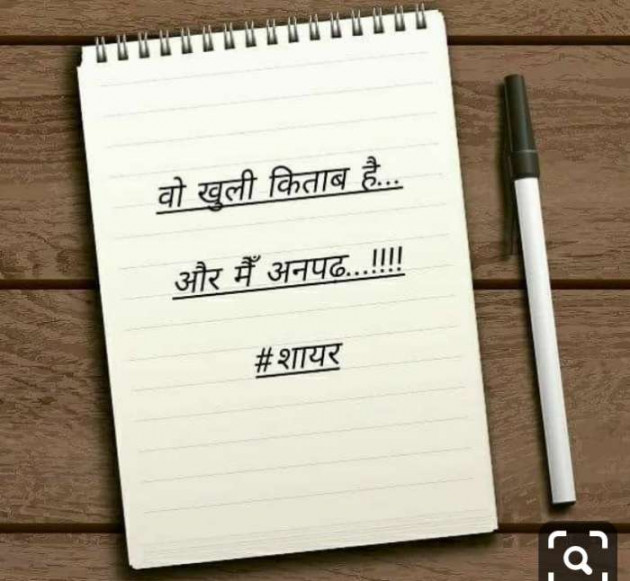 वो खुली किताब है...
और मैँ अनपढ...!!!!
#शायर